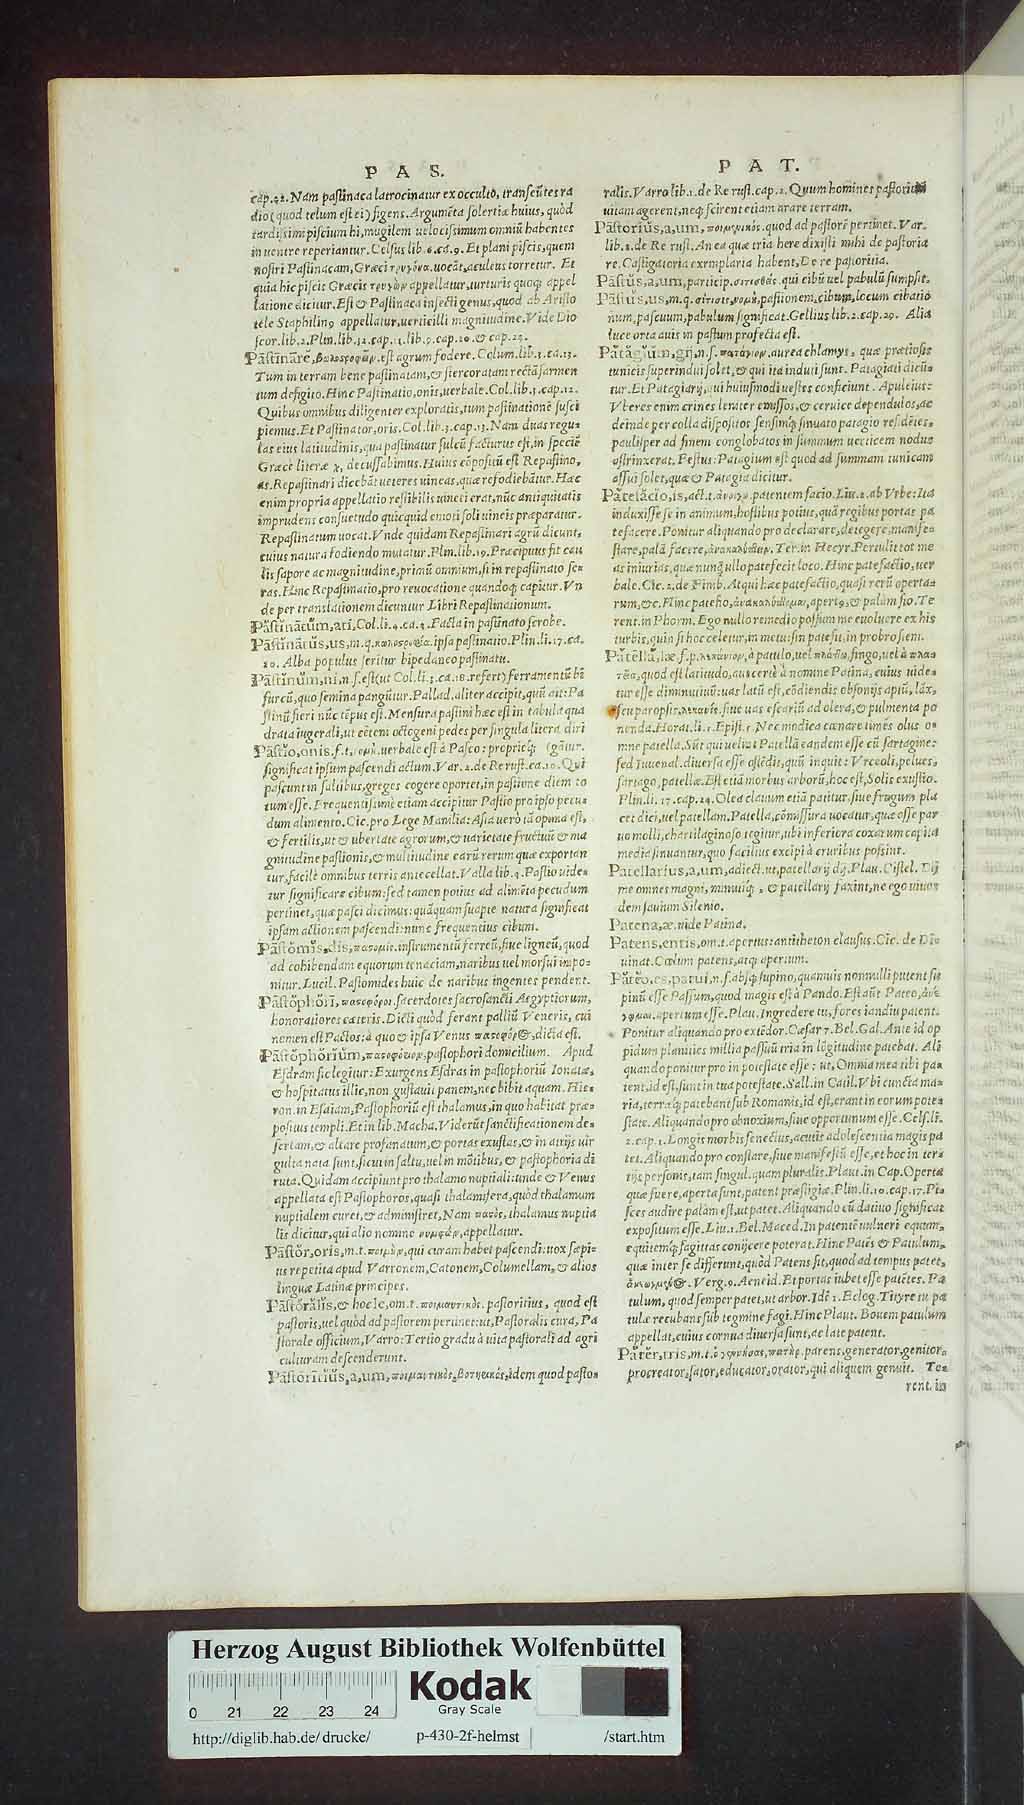 P A S.
cap. 42. Nam pastinaca latrocinatur ex occulto, transeũtes ra
dio (quod telum est ei) figens. Argumẽta solertiæ huius, quòd
tardissimi piscium hi, mugilem uelocissimum omniũ habentes
in uentre reperiantur. Celsus lib. 6. ca. 9. Et plani piscis, quem
nostri Pastinacam, Græci τρυγόνα uocãt, aculeus torretur. Et
quia hic piscis Græcis τρυγὼν appellatur, turturis quoq; appel
latione dicitur. Est & Pastinaca insecti genus, quod ab Aristo
tele Staphilin9 appellatur, uerticilli magnitudine. Vide Dio
scor. lib. 2. Plin. lib. 12. cap. 11. lib. 9. cap. 20. & cap. 23.
Pastinare, est agrum fodere. Colum. lib. 3. ca. 13.
Tum in terram bene pastinatam, & stercoratam rectã sarmen
tum defigito. Hinc Pastinatio, onis, uerbale. Col. lib. 3. cap. 12.
Quibus omnibus diligenter exploratis, tum pastinationẽ susci
piemus. Et Pastinator, oris. Col. lib. 3. cap. 13. Nam duas regu-
las eius latitudinis, qua pastinatur sulcũ facturus est, in speciẽ
Græcè literæ χ, decussabimus. Huius cõpositũ est Repastino,
as. Repastinari dicebãt ueteres uineas, quæ refodiebãtur. Hæc
enim propria appellatio restibilis uineti erat, nũc antiquitatis
imprudens consuetudo quicquid emoti soli uineis præparatur.
Repastinatum uocat. Vnde quidam Repastinari agrũ dicunt,
cuius natura fodiendo mutatur. Plin. lib. 19. Præcipuus fit cau
lis sapore ac magnitudine, primũ omnium, si in repastinato se-
ras. Hinc Repastinatio, pro reuocatione quandoq; capitur. Vn
de per translationem dicuntur Libri Repastinationum.
Pastinatum, ati, Col. li. 4. ca. 3. Facta in pastinato scrobe.
Pastinatus, us, m. q. ipsa pastinatio. Plin. li. 17. ca.
20. Alba populus seritur bipedaneo pastinatu.
Pastinum, ni, n. s. est (ut Col. li. 3. ca. 18. refert) ferramentũ bĩ
furcũ, quo semina pangũtur. Pallad. aliter accipit, quũ ait: Pa
stinũ fieri nũc tẽpus est. Mensura pastini hæc est in tabula qua
drata iugerali, ut cẽteni octogeni pedes per singula litera diri
Pastio, onis. f. t. νομὴ. uerbale est à Pasco: propriéq; (gãtur.
significat ipsum pascendi actum. Var. 2. de Re rust. ca. 10. Qui
pascunt in saltibus, greges cogere oportet, in pastione diem to
tum esse. Frequentissimè etiam accipitur Pastio pro ipso pecu-
dum alimento. Cic. pro Lege Manilia: Asia uerò tã opima est,
& fertilis, ut & ubertate agrorum, & uarietate fructuũ & ma
gnitudine pastionis, & multitudine earũ rerum quæ exportan
tur, facilè omnibus terris antecellat. Valla lib. 4. Pastio uide-
tur significare cibum: sed tamen potius ad alimẽta pecudum
pertinet, quæ pasci dicimus: quãquam suapte natura significat
ipsam actionem pascendi: nunc frequentius cibum.
Pastomis, dis, παστομὶς. instrumentũ ferreũ, siue ligneũ, quod
ad cohibendam equorum tenaciam, naribus uel morsui impo-
nitur. Lucil. Pastomides huic de naribus ingentes pendent.
Pastophori, παστοφόροι. sacerdotes sacrosancti Aegyptiorum,
honoratiores cæteris. Dicti quòd ferant palliũ Veneris, cui
nomen est Pactos: à quo & ipsa Venus παστοφόρος, dicta est.
Pastophorium, παστοφόριον, pastophori domicilium. Apud
Esdram sic legitur: Exurgens Esdras in pastophoriũ Ionatæ,
& hospitatus illic, non gustauit panem, nec bibit aquam. Hie-
ron. in Esaiam, Pastophoriũ est thalamus, in quo habitat præ-
positus templi. Et in lib. Macha. Viderũt sanctificationem de-
sertam, & altare profanatum, & portas exustas, & in atrijs uir
gulta nata sunt, sicut in saltu, uel in mõtibus, & pastophoria di
ruta. Quidam accipiunt pro thalamo nuptiali: unde & Venus
appellata est Pastophoros, quasi thalamifera, quòd thalamum
nuptialem curet, & administret. Nam παστὸς, thalamus nuptia
lis dicitur, qui alio nomine νυμφὼν, appellatur.
Pastor, oris, m. t. ποιμὴν, qui curam habet pascendi: uox sæpi-
us repetita apud Varronem, Catonem, Columellam, & alios
linguæ Latinæ principes.
Pastoralis, & hoc le, om. t. ποιμαντικὸς. pastoritius, quod est
pastoris, uel quòd ad pastorem pertinet: ut, Pastoralis cura, Pa
storale officium, Varro: Tertio gradu à uita pastorali ad agri
culturam descenderunt.
Pastoricius, a, um, ποιμαντικὸς, βοτηικὸς, idem quod pasto-
P A T.
ralis. Varro lib. 2. de Re rust. cap. 2. Quum homines pastoriciã
uitam agerent, neq; scirent etiam arare terram.
Pastorius, a, um, ποιμενικὸς. quod ad pastorẽ pertinet. Var.
lib. 2. de Re rust. An ea quæ tria here dixisti mihi de pastoria
re. Castigatoria exemplaria habent, De re pastoritia.
Pastus, a, um, particip. σιτισθεὶς. qui cibũ uel pabulũ sumpsit.
Pastus, us, m. q. σίτισις, νομὴ, pastionem, cibum, locum cibatio
num, pascuum, pabulum significat. Gellius lib. 2. cap. 29. Alia
luce orta auis in pastum profecta est.
Patagium, gij. n. s. παταγεῖον. aurea chlamys, quæ prætiosis
tunicis superindui solet, & qui ita induti sunt. Patagiati dicũ-
tur. Et Patagiarij, qui huiusmodi uestes conficiunt. Apuleius:
Vberes enim crines leniter emissos, & ceruice dependulos, ac
deinde per colla dispositos sensimq; sinuato patagio residẽtes,
paulisper ad finem conglobatos in summum uerticem nodus
astrinxerat. Festus: Patagium est quod ad summam tunicam
assui solet, quæ & Patagia dicitur.
Patefacio, is, act. t. ἀνοίγω. patentem facio. Liu. 2. ab Vrbe: Ita
induxisse se in animum, hostibus potius, quã regibus portas pa
tefacere. Ponitur aliquando pro declarare, detegere, manife-
stare, palã facere, ἀνακαλύπτειν. Ter. in Hecyr. Pertulit tot me
as iniurias, quæ nunq̃ ullo patefecit loco. Hinc patefactio, uer
bale. Cic. 2. de Finib. Atqui hæc patefactio, quasi rerũ operta-
rum, &c. Hinc patefio, ἀνακαλύπτομαι, apert9, & palàm fio. Te
rent. in Phorm. Ego nullo remedio possum me euoluere ex his
turbis, quin si hoc celetur, in metu: sin patefit, in probro siem.
Patella, læ f. p. λεκάνιον, à patulo, uel πλάττω, fingo, uel à πλα-
τέα, quod est latitudo, aut certè à nomine Patina, cuius uide-
tur esse diminutiuũ: uas latũ est, cõdiendis obsonijs aptũ, láx,
seu paropsis, λεκανὶς. siue uas escariũ ad olera, & pulmenta po
nenda. Horat. li. 1. Epist. 5 Nec modica cœnare timẽs olus o-
mne patella. Sũt qui uelint Patellã eandem esse cũ sartagine:
sed Iuuenal. diuersa esse ostẽdit, quũ inquit: Vrceoli, pelues,
sartago, patellæ. Est etiã morbus arborũ, hoc est, Solis exustio.
Plin. li. 17. cap. 24. Olea clauum etiã patitur, siue fungum pla
cet dici, uel patellam. Patella, cõmissura uocatur, quæ esse par
uo molli, chartilaginoso tegitur, ubi inferiora coxarum capita
media sinuantur, quo facilius excipi à cruribus possint.
Patellarius, a, um, adiect. ut, patellarij dij. Plau. Cistel. Dij
me omnes magni, minutiq;, & patellarij faxint, ne ego uiuus
dem sauium Silenio.
Patena, æ. uide Patina.
Patens, entis, om. t. apertus: antitheton clausus. Cic. de Di-
uinat. Cœlum patens, atq; apertum.
Pateo, es, patui, n. s. absq; supino, quamuis nonnulli putent su
pinũ esse Passum, quod magis est à Pando. Est aũt Pateo, ἀνοί
γομαι. apertum esse. Plau. Ingredere tu, fores iandiu patent.
Ponitur aliquando pro extẽdor. Cæsar 7. Bel. Gal. Ante id op
pidum planities millia passuũ tria in lõgitudinẽ patebat. Ali
quando ponitur pro in potestate esse: ut, Omnia mea tibi pa-
tent, id est, sunt in tua potestate. Sall. in Catil. Vbi cuncta ma-
ria, terræq; patebant sub Romanis, id est, erant in eorum pote-
state. Aliquando pro obnoxium, siue opportunum esse. Cels. li.
2. cap. 1. Longis morbis senectus, acutis adolescentia magis pa
tet. Aliquando pro constare, siue manifestũ esse, et hoc in ter-
tijs personis, tam singul. quam pluralis. Plaut. in Cap. Operta
quæ fuere, aperta sunt, patent præstigiæ. Plin. li. 10. cap. 17. Pi-
sces audire palàm est, ut patet. Aliquando cũ datiuo significat
expositum esse. Liu. 1. Bel. Maced. In patentẽ uulneri equum,
equitemq; sagittas conijcere poterat. Hinc Patẽs & Patulum,
quæ inter se differunt, quòd Patens sit, quod ad tempus patet,
Verg. 9. Aeneid. Et portas iubet esse patẽtes. Pa
tulum, quod semper patet, ut arbor. Idẽ 1. Eclog. Tityre tu pa
tulæ recubans sub tegmine fagi. Hinc Plaut. Bouem patulum
appellat, cuius cornua diuersa sunt, ac late patent.
Pater, tris, m. t. ὁ γεννήσας, πατὴρ. parens, generator, genitor,
procreator, sator, educator, orator, qui aliquem genuit. Te-
rent. in
Herzog August Bibliothek Wolfenbüttel
Kodak
Gray Scale
0 21 22 23 24
http://diglib.hab.de/drucke/ p-430-2f-helmst /start.htm